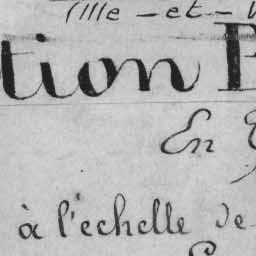 (Ille-et-
tion
En
à l'echelle de